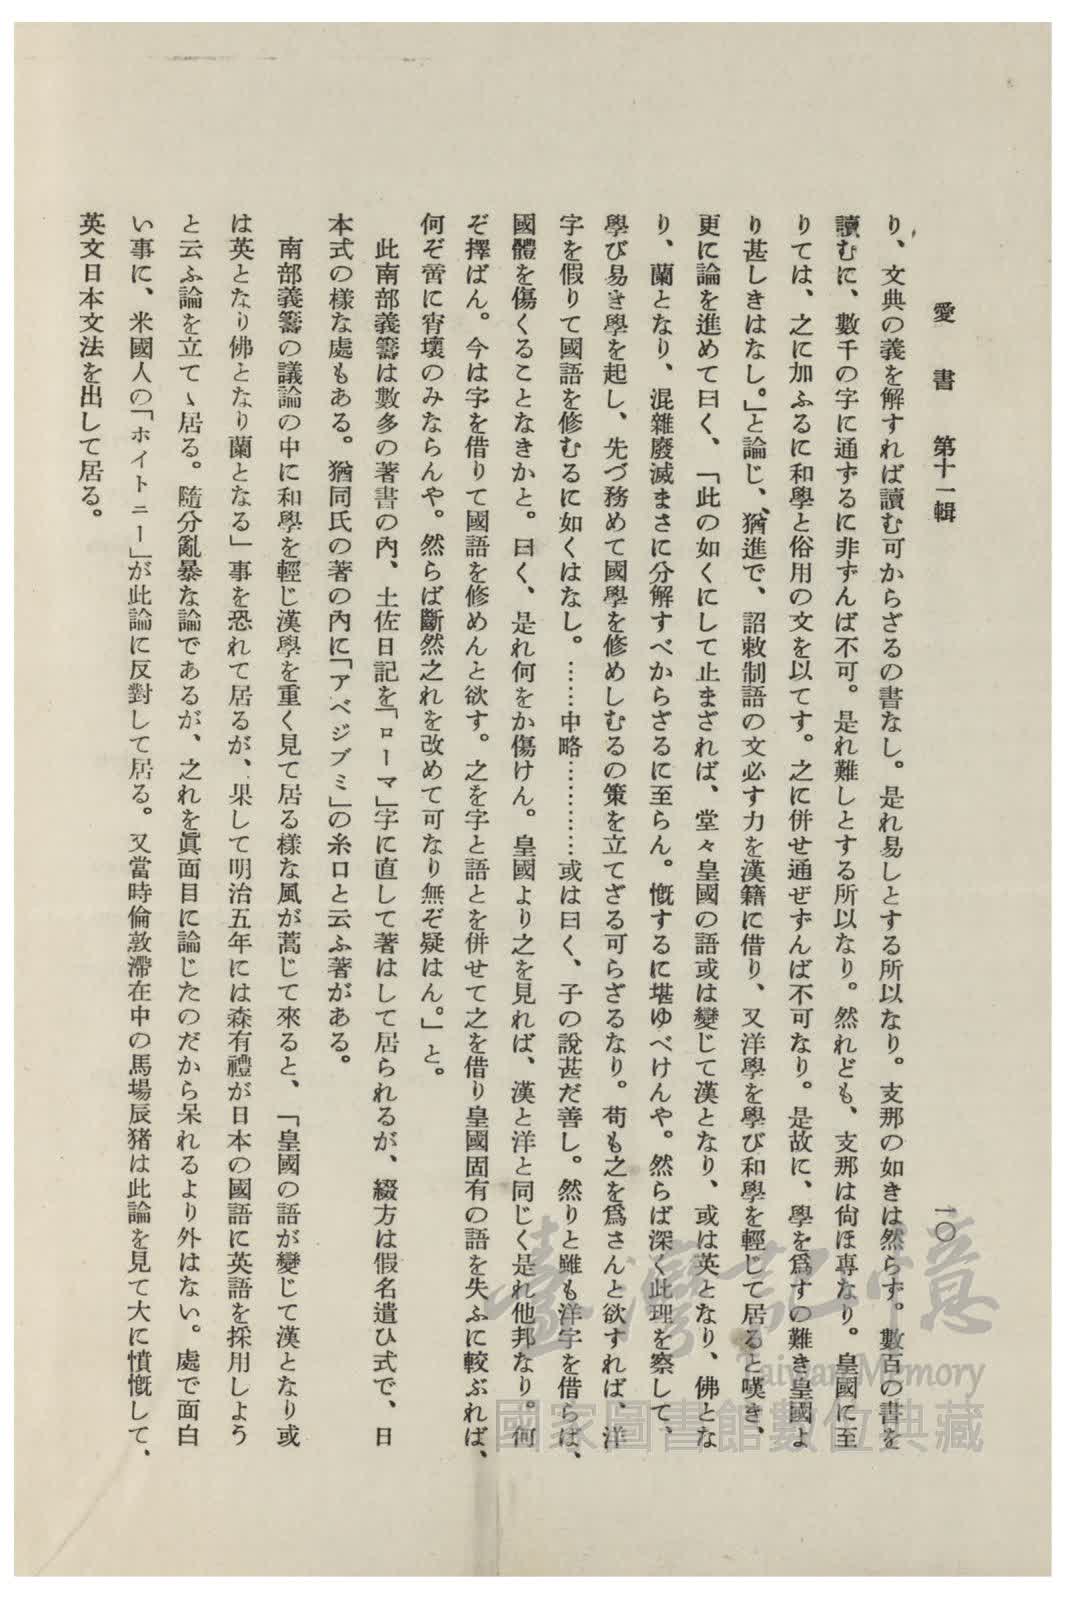 愛書 第十一輯
一〇
り、文典の義を解すれば讀む可からざるの書なし。是れ易しとする所以なり。支那の如きは然らず。數百の書を
讀むに、數千の字に通ずるに非ずんば不可。是れ難しとする所以なり。然れども、支那は尙ほ專なり。皇國に至
りては、之に加ふるに和學と俗用の文を以てす。之に併せ通ぜずんば不可なり。是故に、學を爲すの難き皇國よ
り甚しきはなし。」と論じ、猶進で、詔敕制語の文必す力を漢籍に借り、又洋學を學び和學を輕じて居ると嘆き、
更に論を進めて曰く、「此の如くにして止まざれば、堂々皇國の語或は變じて漢となり、或は英となり、佛とな
り、蘭となり、混雜廢滅まさに分解すべからざるに至らん。慨するに堪ゆべけんや。然らば深く此理を察して、
學び易き學を起し、先づ務めて國學を修めしむるの策を立てざる可らざるなり。苟も之を爲さんと欲すれば、洋
字を假りて國語を修むるに如くはなし。……中略…………或は曰く、子の說甚だ善し。然りと雖も洋字を借らば、
國體を傷くることなきかと。曰く、是れ何をか傷けん。皇國より之を見れば、漢と洋と同じく是れ他邦なり。何
ぞ擇ばん。今は字を借りて國語を修めんと欲す。之を字と語とを併せて之を借り皇國固有の語を失ふに較ぶれば、
何ぞ啻に宵壤のみならんや。然らば斷然之れを改めて可なり無ぞ疑はん。」と。
此南部義籌は數多の著書の內、土佐日記を「ローマ」字に直して著はして居られるが、綴方は假名遣ひ式で、日
本式の樣な處もある。猶同氏の著の內に「アベジブミ」の糸口と云ふ著がある。
南部義籌の議論の中に和學を輕じ漢學を重く見て居る樣な風が蒿じて來ると、「皇國の語が變じて漢となり或
は英となり佛となり蘭となる」事を恐れて居るが、果して明治五年には森有禮が日本の國語に英語を採用しよう
と云ふ論を立てゝ居る。隨分亂暴な論であるが、之れを眞面目に論じたのだから呆れるより外はない。處で面白
い事に、米國人の「ホイトニー」が此論に反對して居る。又當時倫敦滯在中の馬場辰猪は此論を見て大に憤慨して、
英文日本文法を出して居る。
臺灣記憶
Taiwan Memory
國家圖書館數位典藏